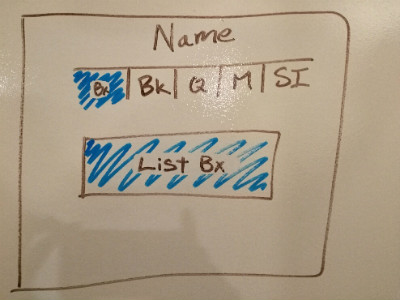 Name
Bx | Bk | Q | M | SI
List Bx